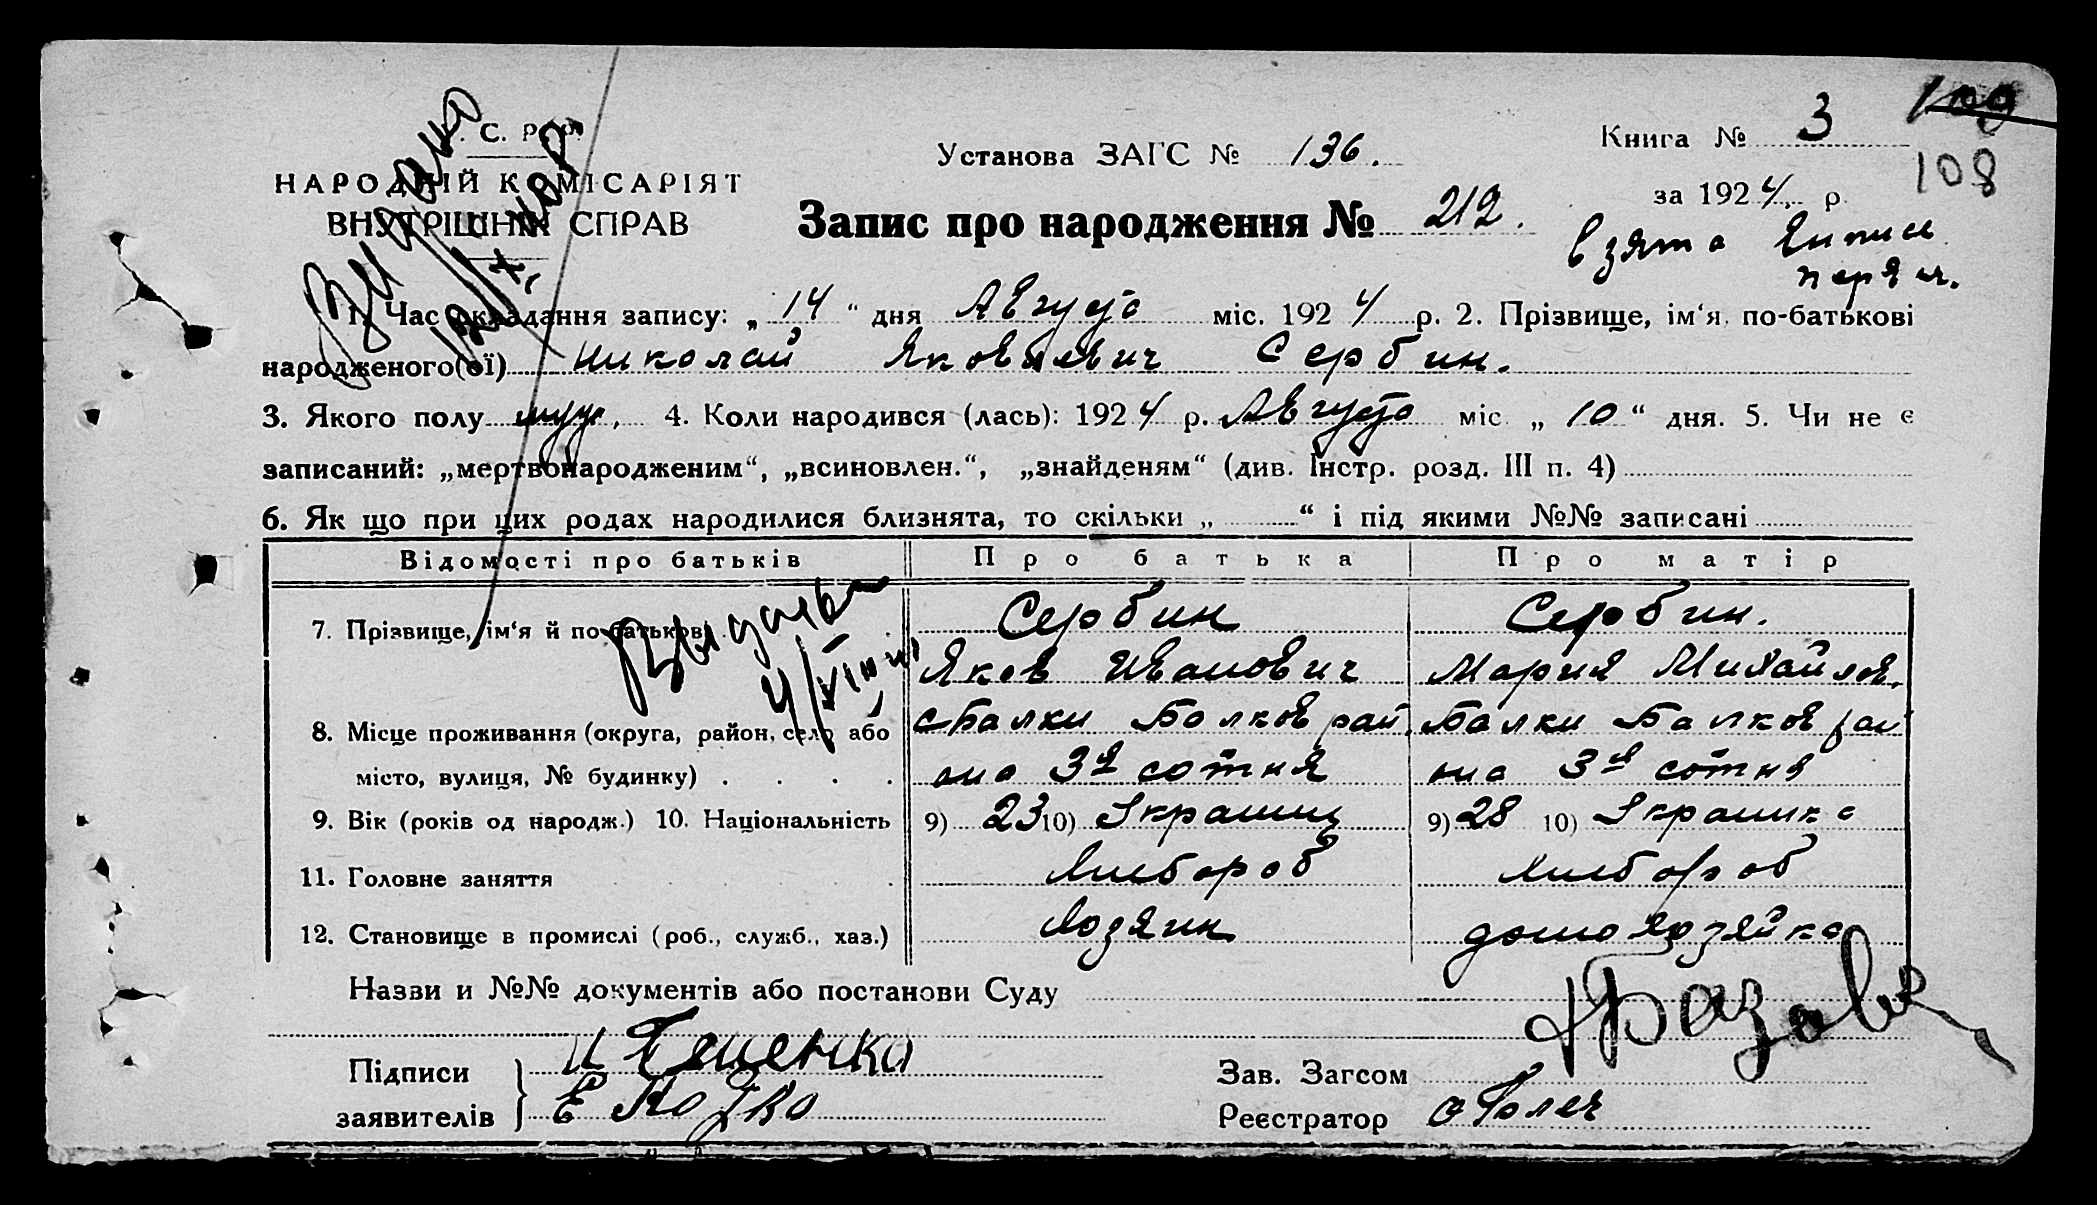 С. Р. Р.
НАРОДНІЙ КОМІСАРІЯТ
ВНУТРІШНІХ СПРАВ
Видано
Установа ЗАГС № 136.
Запис про народження № 212.
Книга № 3
109
108
за 1924 р.
взята Выпись
1. Час складання запису: „14“ дня Августа міс. 1924 р. 2. Прізвище, ім‘я, по-батькові
народженого(ої) Николай Яковлевич Сербин.
3. Якого полу муж, 4. Коли народився (лась): 1924 р. Августа міс. „10“ дня. 5. Чи не є
записаний: „мертвонародженим“, „всиновлен.“, „знайденям“ (див. Інстр. розд. III п. 4)
6. Як що при цих родах народилися близнята, то скільки „ “ і під якими №№ записані
Відомості про батьків Про батька Про матір
7. Прізвище, ім‘я й по-батькові Сербин Сербин.
Яков Иванович Мария Михайлов.
8. Місце проживання (округа, район, село або с Балки Балков рай Балки Балков рай
місто, вулиця, № будинку) . . . . она 3я сотня она 3я сотня
9. Вік (років од народж.) 10. Національність 9) 23 10) Украинц 9) 28 10) Украинка
11. Головне заняття Хлебороб Хлебороб
12. Становище в промислі (роб., служб., хаз.) Хозяин домохозяйка
Назви и №№ документів або постанови Суду
Підписи
заявителів
Зав. Загсом
Реєстратор